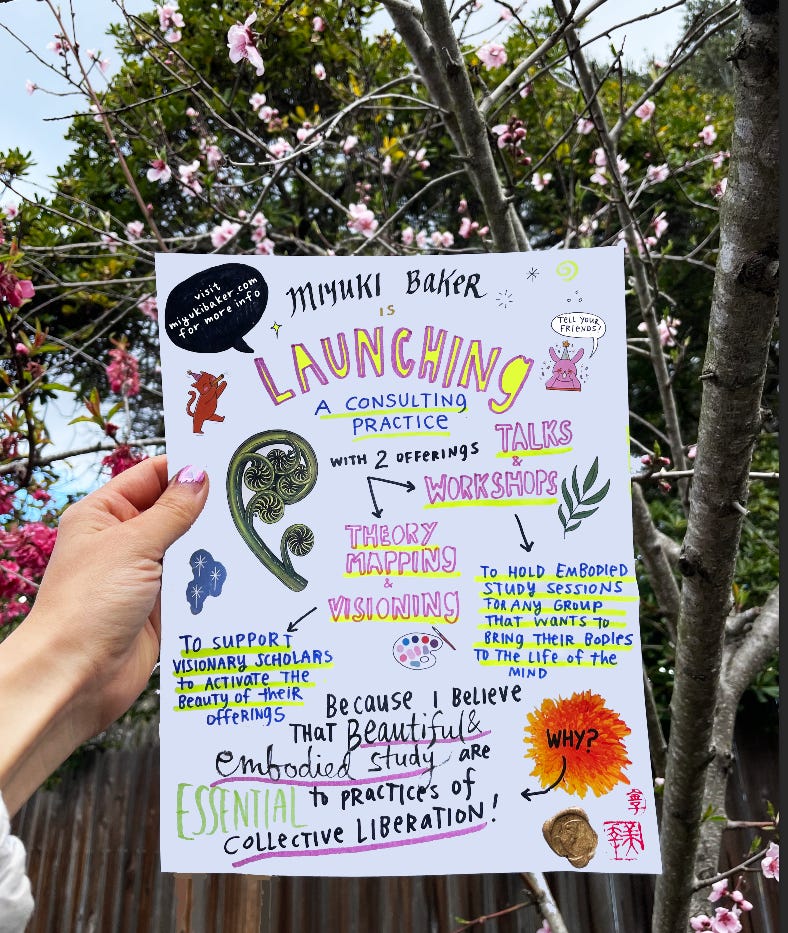 visit
miyukibaker.com
for more info
MIYUKI BAKER
IS
LAUNCHING
TELL YOUR
FRIENDS!
A CONSULTING
PRACTICE
WITH 2 OFFERINGS
TALKS
&
WORKSHOPS
THEORY
MAPPING
&
VISIONING
TO HOLD EMBODIED
STUDY SESSIONS
FOR ANY GROUP
THAT WANTS TO
BRING THEIR BODIES
TO THE LIFE OF THE
MIND
TO SUPPORT
VISIONARY SCHOLARS
TO ACTIVATE THE
BEAUTY OF THEIR
OFFERINGS
WHY?
BECAUSE I BELIEVE
THAT Beautiful &
embodied study are
ESSENTIAL to PRACTICES OF
COLLECTIVE LIBERATION!